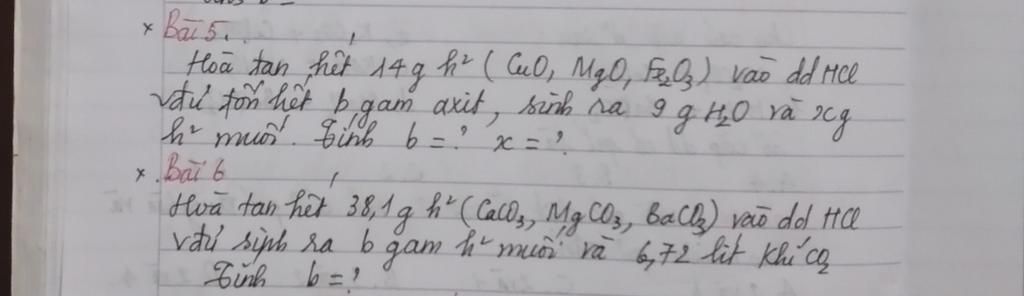 × Bài 5.
Hoà tan hết 14g h² (CuO, MgO, Fe₂O₃) vào dd HCl
vđứ tốn hết b gam axit, sinh ra 9 g H₂O và xg
h² muối. Tính b = ? x = ?
× Bài 6
Hoà tan hết 38,1g h² (CaCO₃, MgCO₃, BaCO₃) vào dd HCl
vđứ sinh ra b gam h² muối và 6,72 lít khí CO₂
Tính b = ?